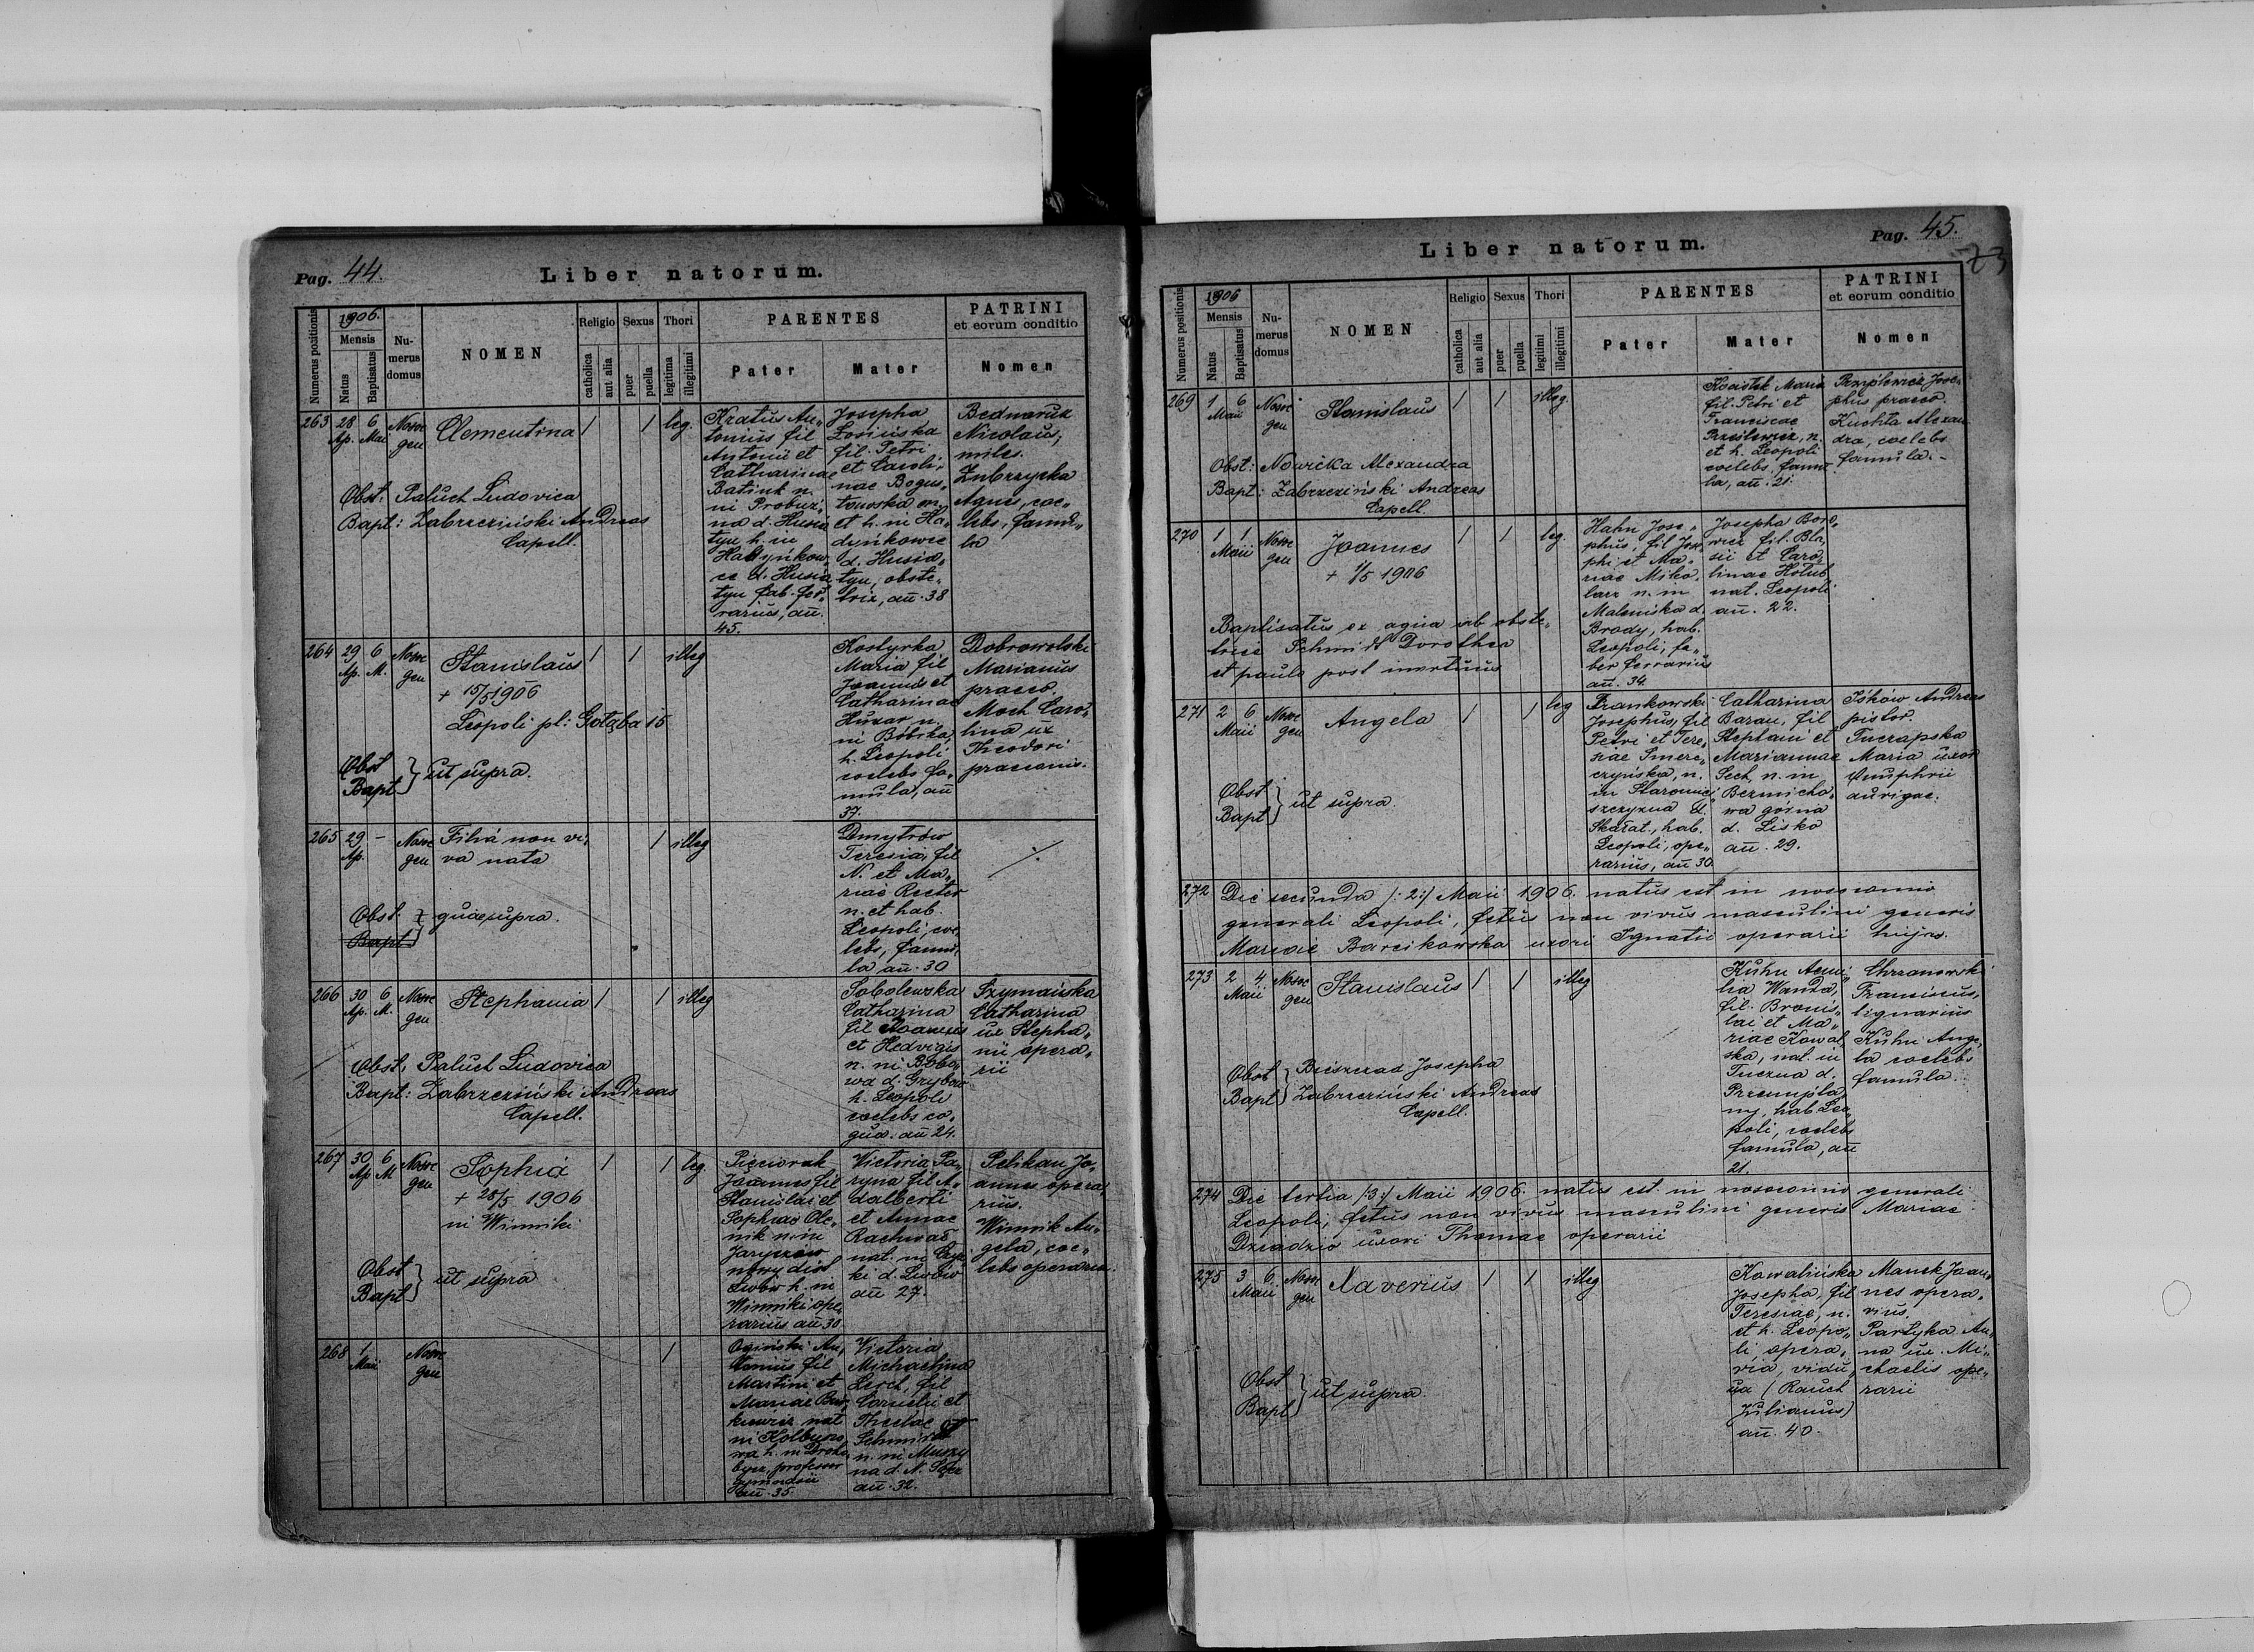 Pag. 44.
Liber natorum.
Numerus positionis
1906.
Mensis
Natus
Baptisatus
Nu-
merus
domus
NOMEN
Religio
catholica
aut alia
Sexus
puer
puella
Thori
legitima
illegitimi
PARENTES
Pater
Mater
PATRINI
et eorum conditio
Nomen
263 28 Ap. 6 Mai Nosoc gen Clementina 1 1 leg.
Obst: Paluch Ludovica
Bapt: Zabrzeziński Andreas
Capell.
Kratius An„
tonius fil
Antonii et
Catharinae
Batiuk n.
ni Probuż„
na d. Husia
tyn h. in
Hadyńkow„
ce d. Husia
tyn fab. fer„
rarius, an̄.
45.
Josepha
Łosińska
fil. Petri
et Caroli„
nae Bogus„
et h. ni Ha„
dyńkowce
d. Husia„
tyn, obste„
trix, an̄. 38
Bednaruk
Nicolaus,
miles.
Zubrzycka
Agnes, coe„
lebs, famu„
la
264 29 Ap. 6 M. Nosoc gen Stanislaus 1 1 illeg
+ 15/5 1906
Leopoli pl: Gołąba 15
Obst
Bapt } ut supra.
Kostyrka
Maria fil
Joannis et
Catharinae
Huzar n.
ni Bóbrka,
h. Leopoli
coelebs fa„
mula, an̄
37.
Dobrowolski
Marianus
praeco.
Moch Caro„
lina ux
Theodori
praeconis.
265 29 Ap. - Nosoc gen Filia non vi„ 1 illeg
va nata
Obst. } quae supra.
Bapt
Dmytrów
Teresia, fil
N. et Ma„
riae Recter
n. et hab.
Leopoli, coe„
lebs, famu„
la an̄. 30
266 30 Ap. 6 M. Nosoc gen Stephania 1 1 illeg
Obst. Paluch Ludovica
Bapt: Zabrzeziński Andreas
Capell.
Sobolewska
Catharina
fil Joannis
et Hedvigis
n. ni Bobo„
wa d. Grybow
h. Leopoli
coelebs co„
qua. an̄ 24.
Szymańska
Catharina
ux. Stepha„
ni opera„
rii
267 30 Ap 6 M Nosoc gen Sophia 1 1 leg.
+ 28/5 1906
ni Winniki
Obst
Bapt } ut supra
Pięciorak
Joannes fil
Stanislai et
Sophiae Ole„
nik n. in
Jaryczów
nowy dist
Lwów h. in
Winniki ope„
rarius an̄ 30
Victoria Pa„
ryna fil A„
dalberti
et Annae
Rachwał
ki d. Lwów
an̄ 27.
Pelikan Jo„
annes opera„
rius.
Winnik An„
gela, coe„
lebs operaria.
268 1 Maii Nosoc gen 1
Ogiński An„
tonius fil
Martini et
Mariae
kiewicz nat
ni Kolbuszo
wa h. in Droho
bycz, professor
Gymnasii
an̄. 35.
Victoria
Michaelina
Lerch, fil
Cornelii et
Theclae
Schmidt
n. ni Muszy
na d. N. Sącz
an̄. 32.
Pag. 45.
73
Liber natorum.
Numerus positionis
1906
Mensis
Natus
Baptisatus
Nu-
merus
domus
NOMEN
Religio
catholica
aut alia
Sexus
puer
puella
Thori
legitimi
illegitimi
PARENTES
Pater
Mater
PATRINI
et eorum conditio
Nomen
269 1 Maii 6 Nosoc gen Stanislaus 1 1 illeg.
Obst: Nowicka Alexandra
Bapt: Zabrzeziński Andreas
Capell.
Maria
fil. Petri et
Franciscae
n.
et h. Leopoli
coelebs, famu„
la, an̄. 21.
Jose„
phus praeco.
Kuchta Alexan
dra, coelebs
famula.
270 1 Maii 1 Nosoc gen Joannes 1 1 leg.
+ 1/5 1906
Baptisatus ex aqua ab obste„
trice Schmidt Dorothea
et paulo post mortuus
Hahn Jose„
phus, fil Jose„
phi et Ma„
riae Miko„
łarz n. in
Maleniska d.
Brody, hab.
Leopoli, fa„
ber ferrarius
an̄. 34.
Josepha Boro„
wicz fil. Bla„
sii et Caro„
linae Hołub
nat. Leopoli
an̄. 22.
271 2 Maii 6 Nosoc gen Angela 1 1 leg
Obst
Bapt } ut supra.
Frankowski
Josephus, fil
Petri et Tere„
siae Smere„
czyńska, n.
in Staromiej„
szczyzna d.
Skałat., hab.
Leopoli, ope„
rarius, an̄ 30.
Catharina
Baran, fil
Stephani et
Mariannae
Sech, n. in
Bezmicho„
wa górna
d. Lisko
an̄. 29.
Iśków Andreas
pistor.
Tuczapska
Maria uxor
Onuphrii
aurigae.
272 Die secunda /:2:/ Maii 1906. natus est in nosocomio
generali Leopoli, fetus non vivus masculini generis
Mariae Barcikowska uxori Ignatii operarii hujus.
273 2 Maii 4 Nosoc gen Stanislaus 1 1 illeg
Obst } Bieszczad Josepha
Bapt } Zabrzeziński Andreas
Capell.
Kuhn Aemi„
lia Wanda,
fil. Bronis„
lai et Ma„
riae Kowal„
ska, nat. in
Tuczna d.
Przemyśla„
ny, hab Leo„
poli, coelebs
famula, an̄
21.
Chrzanowski
Franciscus,
lignarius
Kuhn Ange„
la coelebs
famula.
274 Die tertia /:3:/ Maii 1906. natus est. in nosocomio generali
Leopoli, fetus non vivus masculini generis Mariae
Dziadzio uxori Thomae operarii
275 3 Maii 6 Nosoc gen Xaverius 1 1 illeg
Obst
Bapt } ut supra.
Kowalińska
Josepha, fil
Teresiae, n.
et h. Leopo„
li opera„
ria, vidu„
ua (Rauch
Julianus)
an̄. 40.
Manek Joan„
nes opera„
rius
Partyka An„
na ux. Mi„
chaelis ope„
rarii